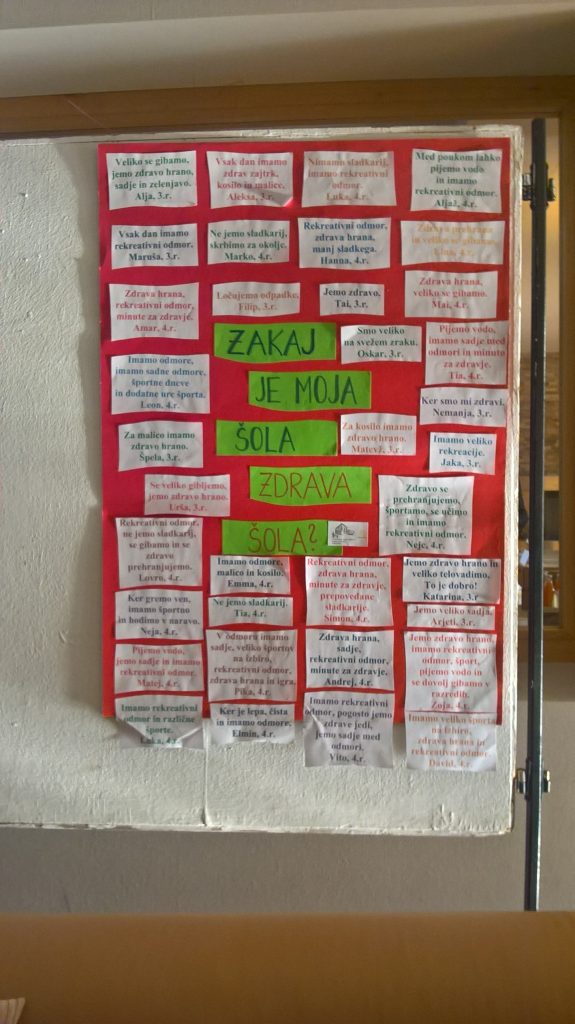 Veliko se gibamo,
jemo zdravo hrano,
sadje in zelenjavo.
Alja, 3.r.
Vsak dan imamo
zdrav zajtrk,
kosilo in malico.
Aleksa, 3.r.
Nimamo sladkarij,
imamo rekreativni
odmor.
Luka, 4.r.
Med poukom lahko
pijemo vodo
in imamo
rekreativni odmor.
Aljaž, 4.r.
Vsak dan imamo
rekreativni odmor.
Maruša, 3.r.
Ne jemo sladkarij,
skrbimo za okolje.
Marko, 4.r.
Rekreativni odmor,
zdrava hrana,
manj sladkega.
Hanna, 4.r.
Zdrava prehrana
in veliko se gibamo.
4.r.
Zdrava hrana,
rekreativni odmor,
minute za zdravje.
Amar, 4.r.
Ločujemo odpadke.
Filip, 3.r.
Jemo zdravo,
Tai, 3.r.
Zdrava hrana,
veliko se gibamo.
Mai, 4.r.
ZAKAJ
JE MOJA
ŠOLA
ZDRAVA
ŠOLA?
Smo veliko
na svežem zraku.
Oskar, 3.r.
Pijemo vodo,
imamo sadje med
odmori in minuto
za zdravje.
Tia, 4.r.
Imamo odmore,
imamo sadne odmore,
športne dneve
in dodatne ure športa.
Leon, 4.r.
Ker smo mi zdravi,
Nemanja, 3.r.
Za malico imamo
zdravo hrano.
Špela, 3.r.
Za kosilo imamo
zdravo hrano.
Matevž, 3.r.
Imamo veliko
rekreacije.
Jaka, 3.r.
Se veliko gibljemo,
jemo zdravo hrano.
Urša, 3.r.
Zdravo se
prehranjujemo,
športamo, se učimo
in imamo
rekreativni odmor.
Nejc, 4.r.
Rekreativni odmor,
ne jemo sladkarij,
se gibamo in se
zdravo
prehranjujemo.
Lovro, 4.r.
Imamo odmore,
malico in kosilo.
Emma, 4.r.
Rekreativni odmor,
zdrava hrana,
minute za zdravje,
prepovedane
sladkarije.
Simon, 4.r.
Jemo zdravo hrano in
veliko telovadimo.
To je dobro!
Katarina, 3.r.
Ker gremo ven,
imamo športno
in hodimo v naravo.
Neja, 4.r.
Ne jemo sladkarij.
Tia, 4.r.
Jemo veliko sadja,
Arjeti, 3.r.
Pijemo vodo,
jemo sadje in imamo
rekreativni odmor.
Matej, 4.r.
V odmoru imamo
sadje, veliko športov
na izbiro,
rekreativni odmor,
zdrava hrana in igra,
Pika, 4.r.
Zdrava hrana,
sadje,
rekreativni odmor,
minute za zdravje.
Andrej, 4.r.
Jemo zdravo hrano,
imamo rekreativni
odmor, šport,
pijemo vodo in
se dovolj gibamo v
razredih.
Zoja, 4.r.
Imamo rekreativni
odmor in različne
športe.
Luka, 4.r.
Ker je lepa, čista
in imamo odmore.
Elmin, 4.r.
Imamo rekreativni
odmor, pogosto jemo
zdrave jedi,
jemo sadje med
odmori.
Vito, 4.r.
Imamo veliko športa
na izbiro,
zdrava hrana in
rekreativni odmor.
David, 4.r.